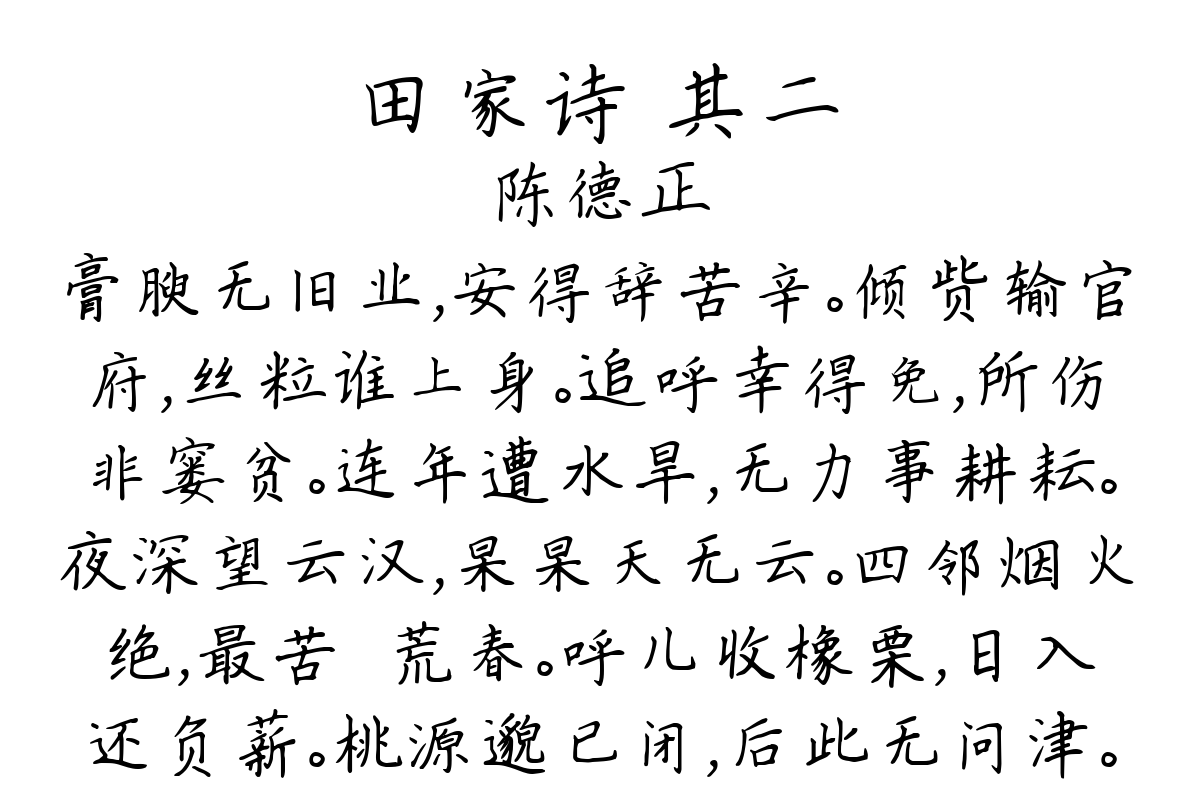 田家诗 其二
陈德正
膏腴无旧业,安得辞苦辛。倾赀输官
府,丝粒谁上身。追呼幸得免,所伤
非窭贫。连年遭水旱,无力事耕耘。
夜深望云汉,杲杲天无云。四邻烟火
绝,最苦 荒春。呼儿收橡栗,日入
还负薪。桃源邈已闭,后此无问津。